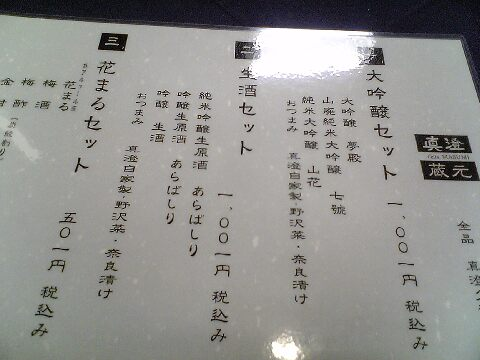 真澄
蔵元
全品
大吟醸セット 一、〇〇一円 税込み
大吟醸 夢殿
山廃純米大吟醸 七號
純米大吟醸 山花
おつまみ 真澄自家製・野沢菜・奈良漬け
二
生酒セット 一、〇〇一円 税込み
純米吟醸生原酒 あらばしり
吟醸生原酒 あらばしり
吟醸 生酒
おつまみ 真澄自家製・野沢菜・奈良漬け
三
花まるセット 五〇一円 税込み
花まる
梅酒
梅酢